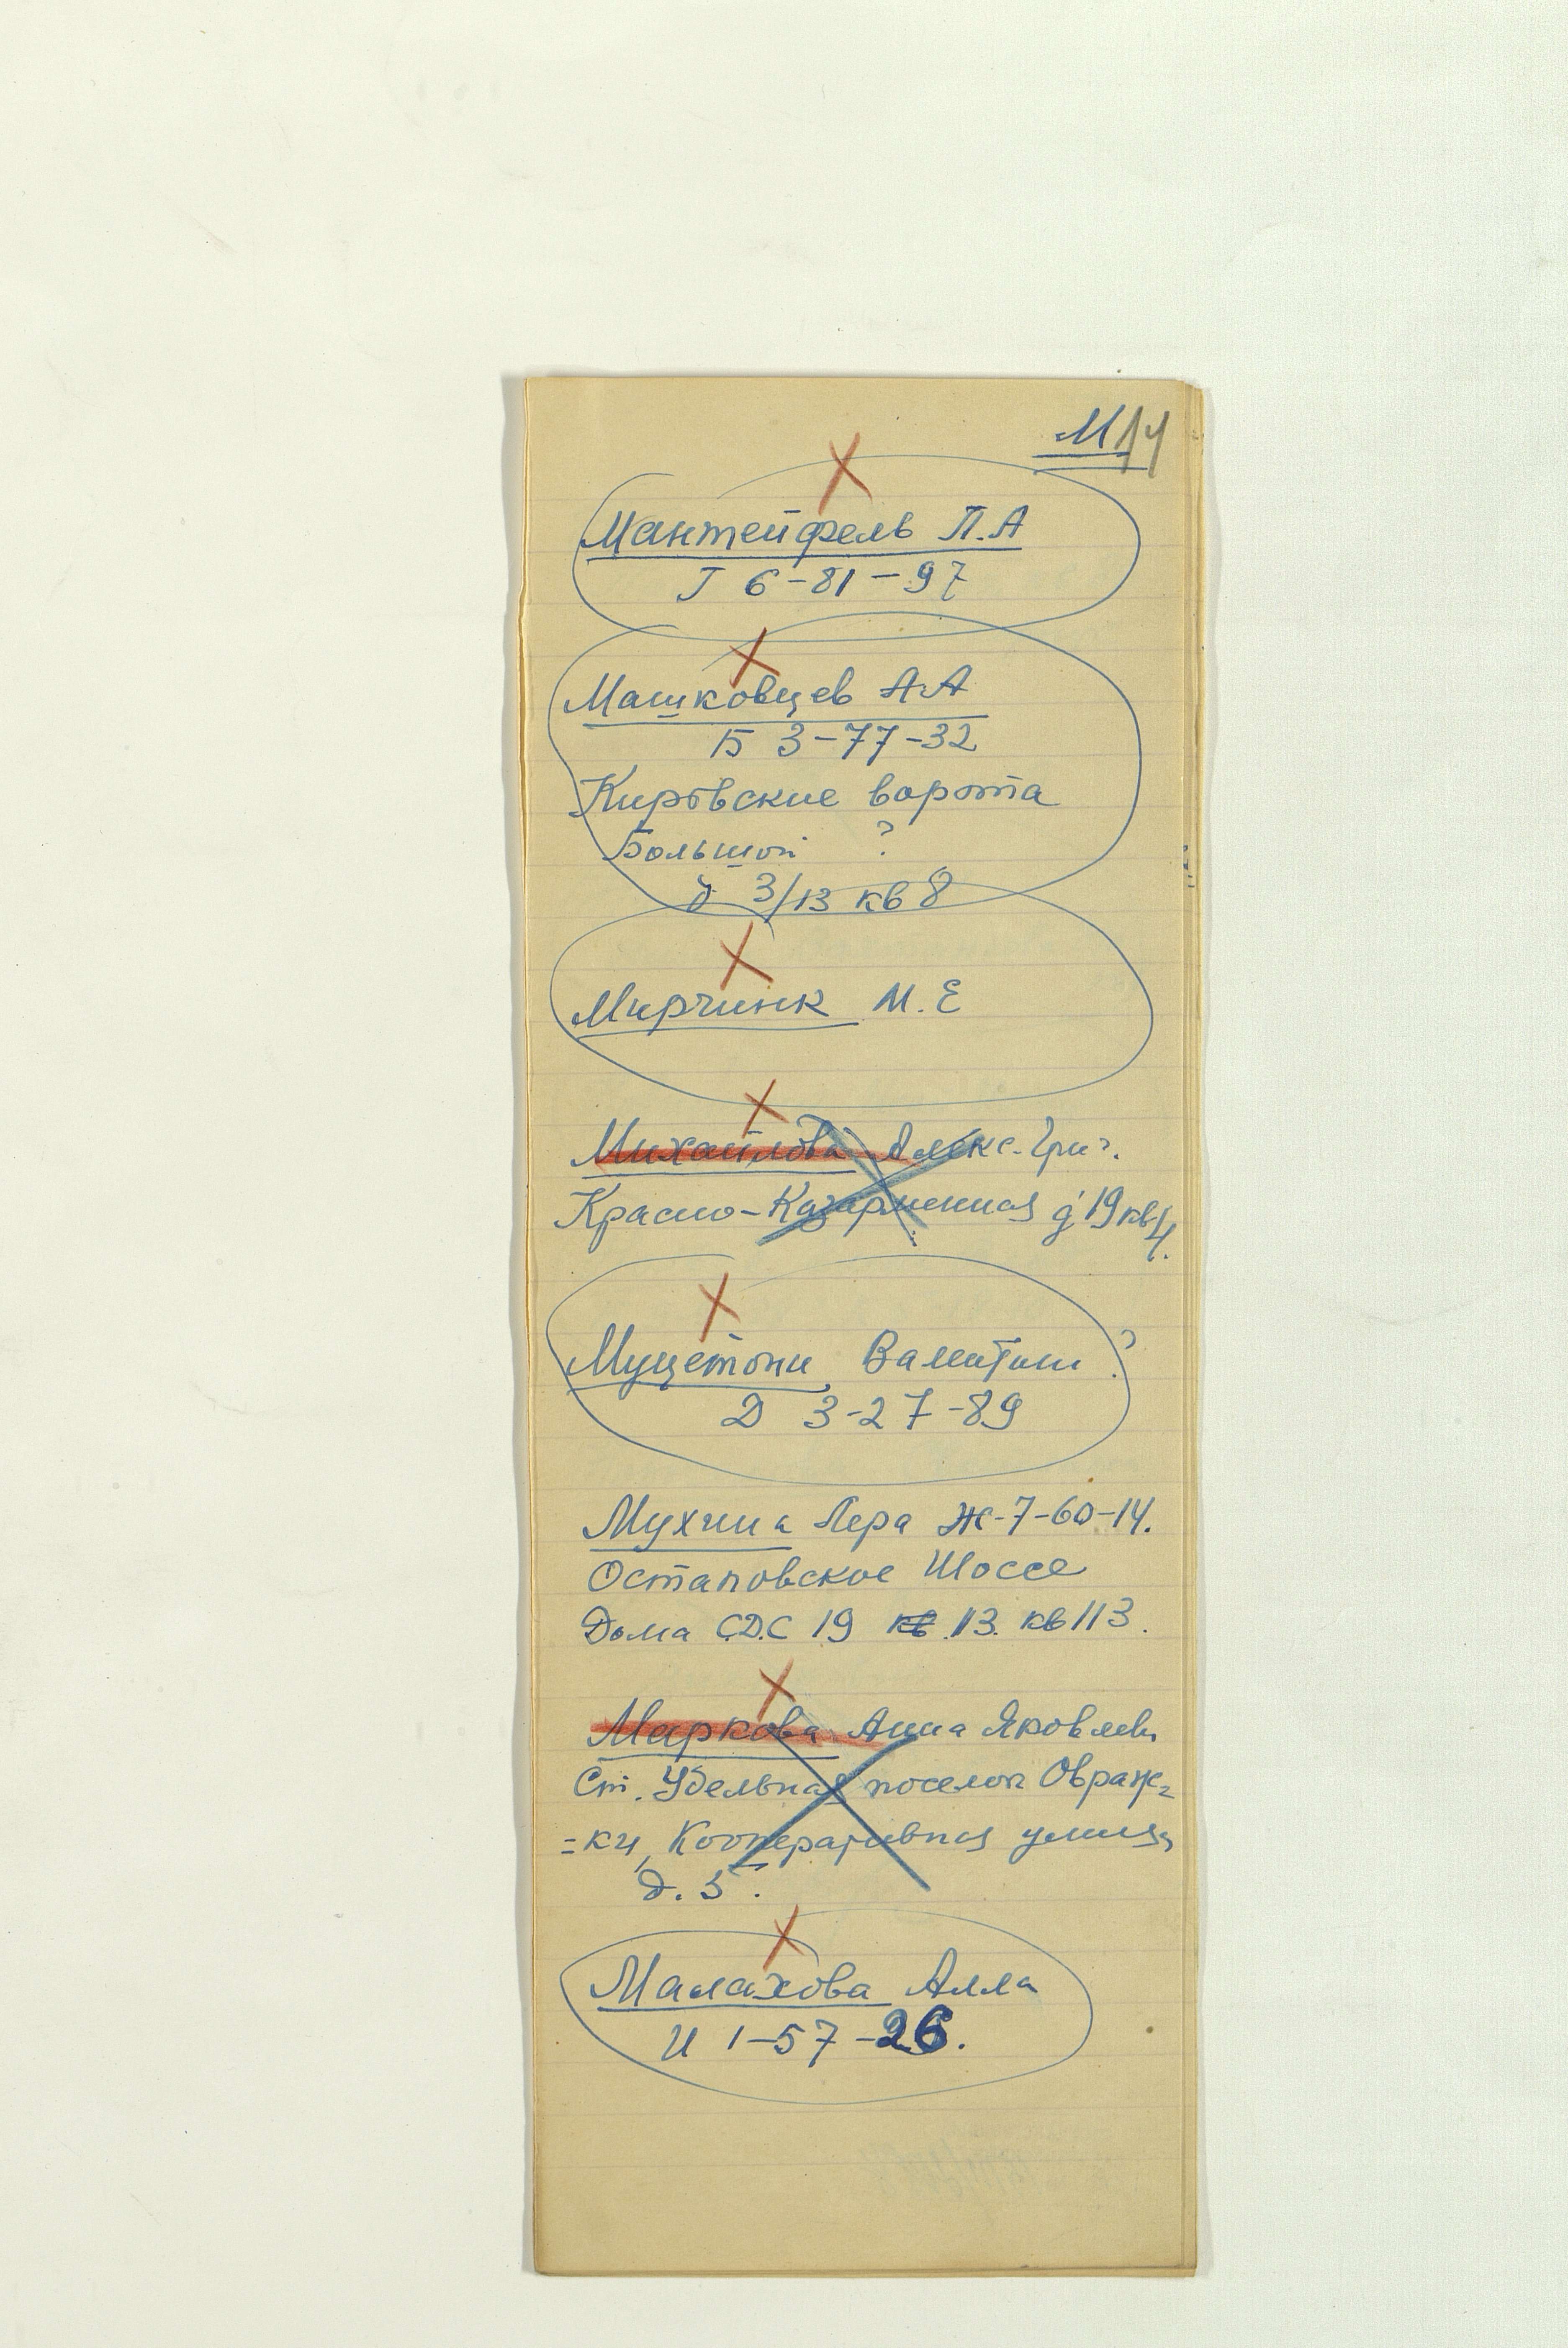 М 14
Мантейфель П.А
Г 6-81-97
Машковцев А.А
Б 3-77-32
Кировские ворота
Большой ?
д 3/13 кв 8
Мирчинк М.Е
Михайлова Алекс. Григ.
Красно-Казарменная д 19 кв 4.
Муцетони Валентин ?
Д 3-27-89
Мухина Лера Ж-7-60-14.
Остаповское Шоссе
Дома С.Д.С 19 кв 13. кв 113.
Маркова Анна Яковлевн
Ст. Удельная поселок Овраж=
=ки, Кооперативная улица,
д. 5.
Малахова Алла
И 1-57-26.